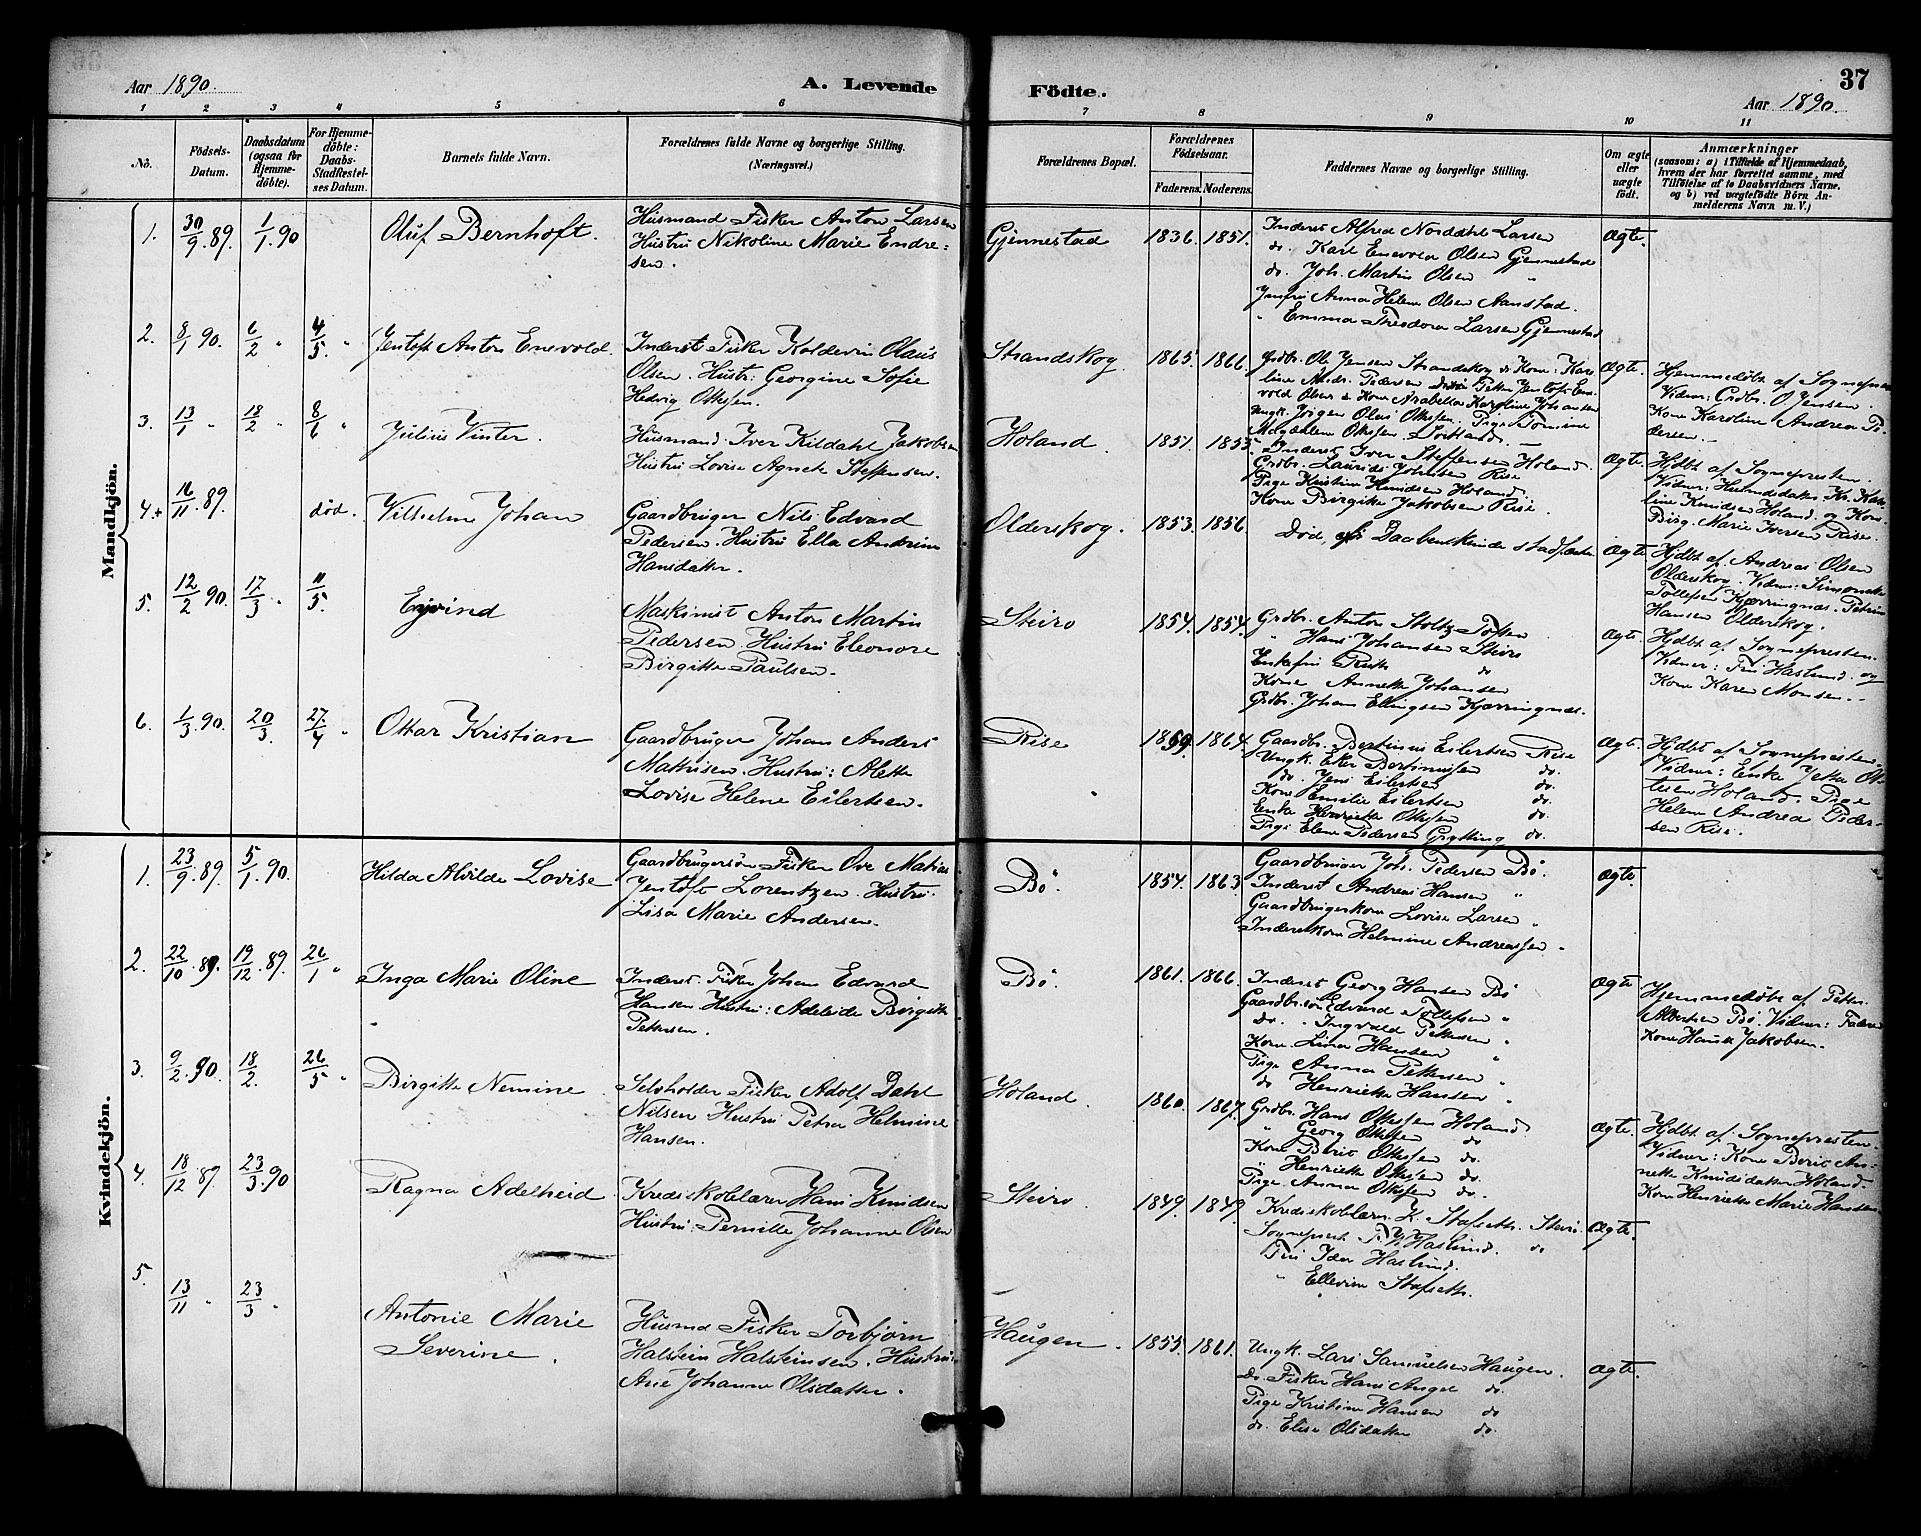 Aar 1890.
A. Levende
Födte.
37
Aar 1890.
1 2 3 4 5 6 7 8 9 10 11
No.
Födsels-
Datum.
Daabsdatum
(ogsaa for
Hjemme-
döbte).
For Hjemme-
döbte:
Daabs-
Stadfæstel-
ses Datum.
Barnets fulde Navn.
Forældrenes fulde Navne og borgerlige Stilling.
(Næringsvei.)
Forældrenes Bopæl.
Forældrenes
Födselsaar.
Faderens. Moderens.
Faddernes Navne og borgerlige Stilling.
Om ægte
eller
uægte
födt.
Anmærkninger
(saasom: a) i Tilfælde af Hjemmedaab,
hvem der har forrettet samme, med
Tilföielse af to Daabsvidners Navne,
og b) ved uægtefödte Börn An-
melderens Navn m. V.)
Mandkjön.
1. 30/9. 89. 1/1. 90 Oluf Bernhoft.
Husmand Fisker Anton Larsen
Hustru Nikoline Marie Endre-
sen.
Gjennestad 1836. 1851.
Inderst Alfred Norddahl Larsen
do. Karl Enevold Olsen Gjennestad
do. Joh. Martin Olsen "
Jomfru Anna Helene Olsen Aanstad.
" Emma Theodora Larsen Gjennestad
Ægte.
2. 8/1 90. 6/2 " 4/5. " Jentoft Anton Enevold.
Inderst Fisker Koldevin Olaus
Olsen. Hustr: Georgine Sofie
Hedvig Ottesen.
Strandskog. 1865. 1866.
Grdbr. Ole Jensen Strandskog & Kone. Karo
line Andr. Pedersen Petter Jentoft Ene-
vold Olsen & Kone Arabella Karoline Johansen
Ungk. Jörgen Olai Ottesen. Pige Tomine
Magdalene Ottesen. Sortland.
Ægte.
Hjemmedöbt af Sognepresten
Vidner: Grdbr. O. Jensen.
Kone Karoline Andrea Pe-
dersen.
3. 13/1 " 18/2 " 8/6 " Julius Vinter.
Husmand. Iver Kildahl Jakobsen
Hustru Lovise Agnete Steffensen.
Holand. 1851. 1855.
Inderst Iver Steffensen Holand.
Grdbr. Laurids Johnsen Rise
Pige Kristine Knudsen Holand
Kone Birgitte Jakobsen Rise.
Ægte.
Hjdbt af Sognepresten.
Vidner: Husmdsdatter Kr. Karo-
line Knudsen Holand. og Kone
Birg. Marie Iversen Rise.
4.+ 16/11 89. död. Vilhelm Johan
Gaardbruger Nils Edvard
Pedersen. Hustru Ella Andrine
Hansdatter.
Olderskog. 1853. 1856.
Död, för Daaben kunde stadfæstes
Ægte
Hjdbt af Andreas Olsen
Olderskog. Vidner: Simonette
Tollefsen Kjærringnæs. Petrine
Hansen Olderskog.
5. 12/2 90. 17/3 " 11/5. Ejvind
Maskinist Anton Martin
Pedersen. Hustru Eleonore
Birgitte Paulsen.
Steiro 1854. 1854.
Grdbr. Anton Stoltz Toften
" Hans Johansen Steiro
Enkefru Rist do
Kone Annette Johansen
Grdbr. Johan Ellingsen Kjærringnæs.
Ægte.
Hjdbt af Sognepresten.
Vidner: Fru Haslund. og
Kone Karen Monsen.
6. 1/3. 90. 20/3. 27/4 " Ottar Kristian
Gaardbruger Johan Anders
Mathisen. Hustru: Alette
Lovise Helene Eilertsen.
Rise 1859. 1864.
Gaardbr. Bertinus Eilertsen Rise
Ungk. Eker Bertinussen do.
do. Jens Eilertsen do.
Kone Emilie Eilertsen do.
Enke Henriette Ottesen do.
Pige Elen Pedersen Grytting do.
Ægte.
Hjdbt af Sognepresten.
Vidner: Enke Jetta Ot-
tesen Holand. Pige
Helene Andrea Peder-
sen Rise.
Kvindekjön.
1. 23/9. 89. 5/1. 90. Hilda Alvilde Lovise
Gaardbrugersön Fisker Ove Matias
Jentoft Lorentzen. Hustru:
Lisa Marie Andersen.
Bö. 1854. 1863.
Gaardbruger Joh. Pedersen Bö.
Inderst Andreas Hansen "
Gaardbrugerkone Lovise Larsen "
Inderstkone Helmine Andreassen "
Ægte.
2. 22/10. 89. 19/12. 89. 26/1 " Inga Marie Oline
Inderst. Fisker Johan Edvard
Hansen Hustru: Adeleide Birgitte
Pettersen.
Bö. 1861. 1866.
Inderst Georg Hansen Bö
Gaardbr.sön Edvard Tollefsen "
Do. " Ingvald Pettersen "
Kone. Lina Hansen "
Pige Anna Pettersen "
do Henriette Hansen "
Ægte.
Hjemmedöbt af Petter
Albertsen Bö. Vidner: Faderen
Kone Hansa Jakobsen.
3. 9/2. 90. 18/2. 26/5 " Birgitte Nemine
Selvholder Fisker Adolf Dahl
Nilsen Hustru Petra Helmine
Hansen.
Holand. 1860. 1867.
Grdbr. Hans Ottesen Holand.
" Georg Ottesen do
Kone Berit Ottesen do.
" Henriette Ottesen do.
Pige Anna Ottesen do.
Ægte.
Hjdbt af Sognepresten.
Vidner: Kone Berit An-
nette Knudsdatter Holand.
Kone Henriette Marie Hansen.
4. 18/12 89. 23/3. 90 Ragna Adelheid.
Kredsskolelærer Hans Knudsen
Hustru Pernille Johanne Olsen
Steiro. 1849. 1849.
Kredsskolelærer K. Stafseth. Steiro
Sogneprest P. H. Haslund. do
Fru Ida Haslund.
" Ellevine Stafseth.
Ægte.
5. 13/11 " 23/3 " Antonie Marie
Severine.
Husmd Fisker Torbjörn
Halstein Halsteinsen. Hustru
Ane Johanne Olsdatter.
Haugen. 1855. 1861.
Ungk. Lars Samuelsen Haugen.
Do. Fisker Hans Angel do.
Pige Kristine Hansen do
do. Elise Olsdatter do.
Ægte.